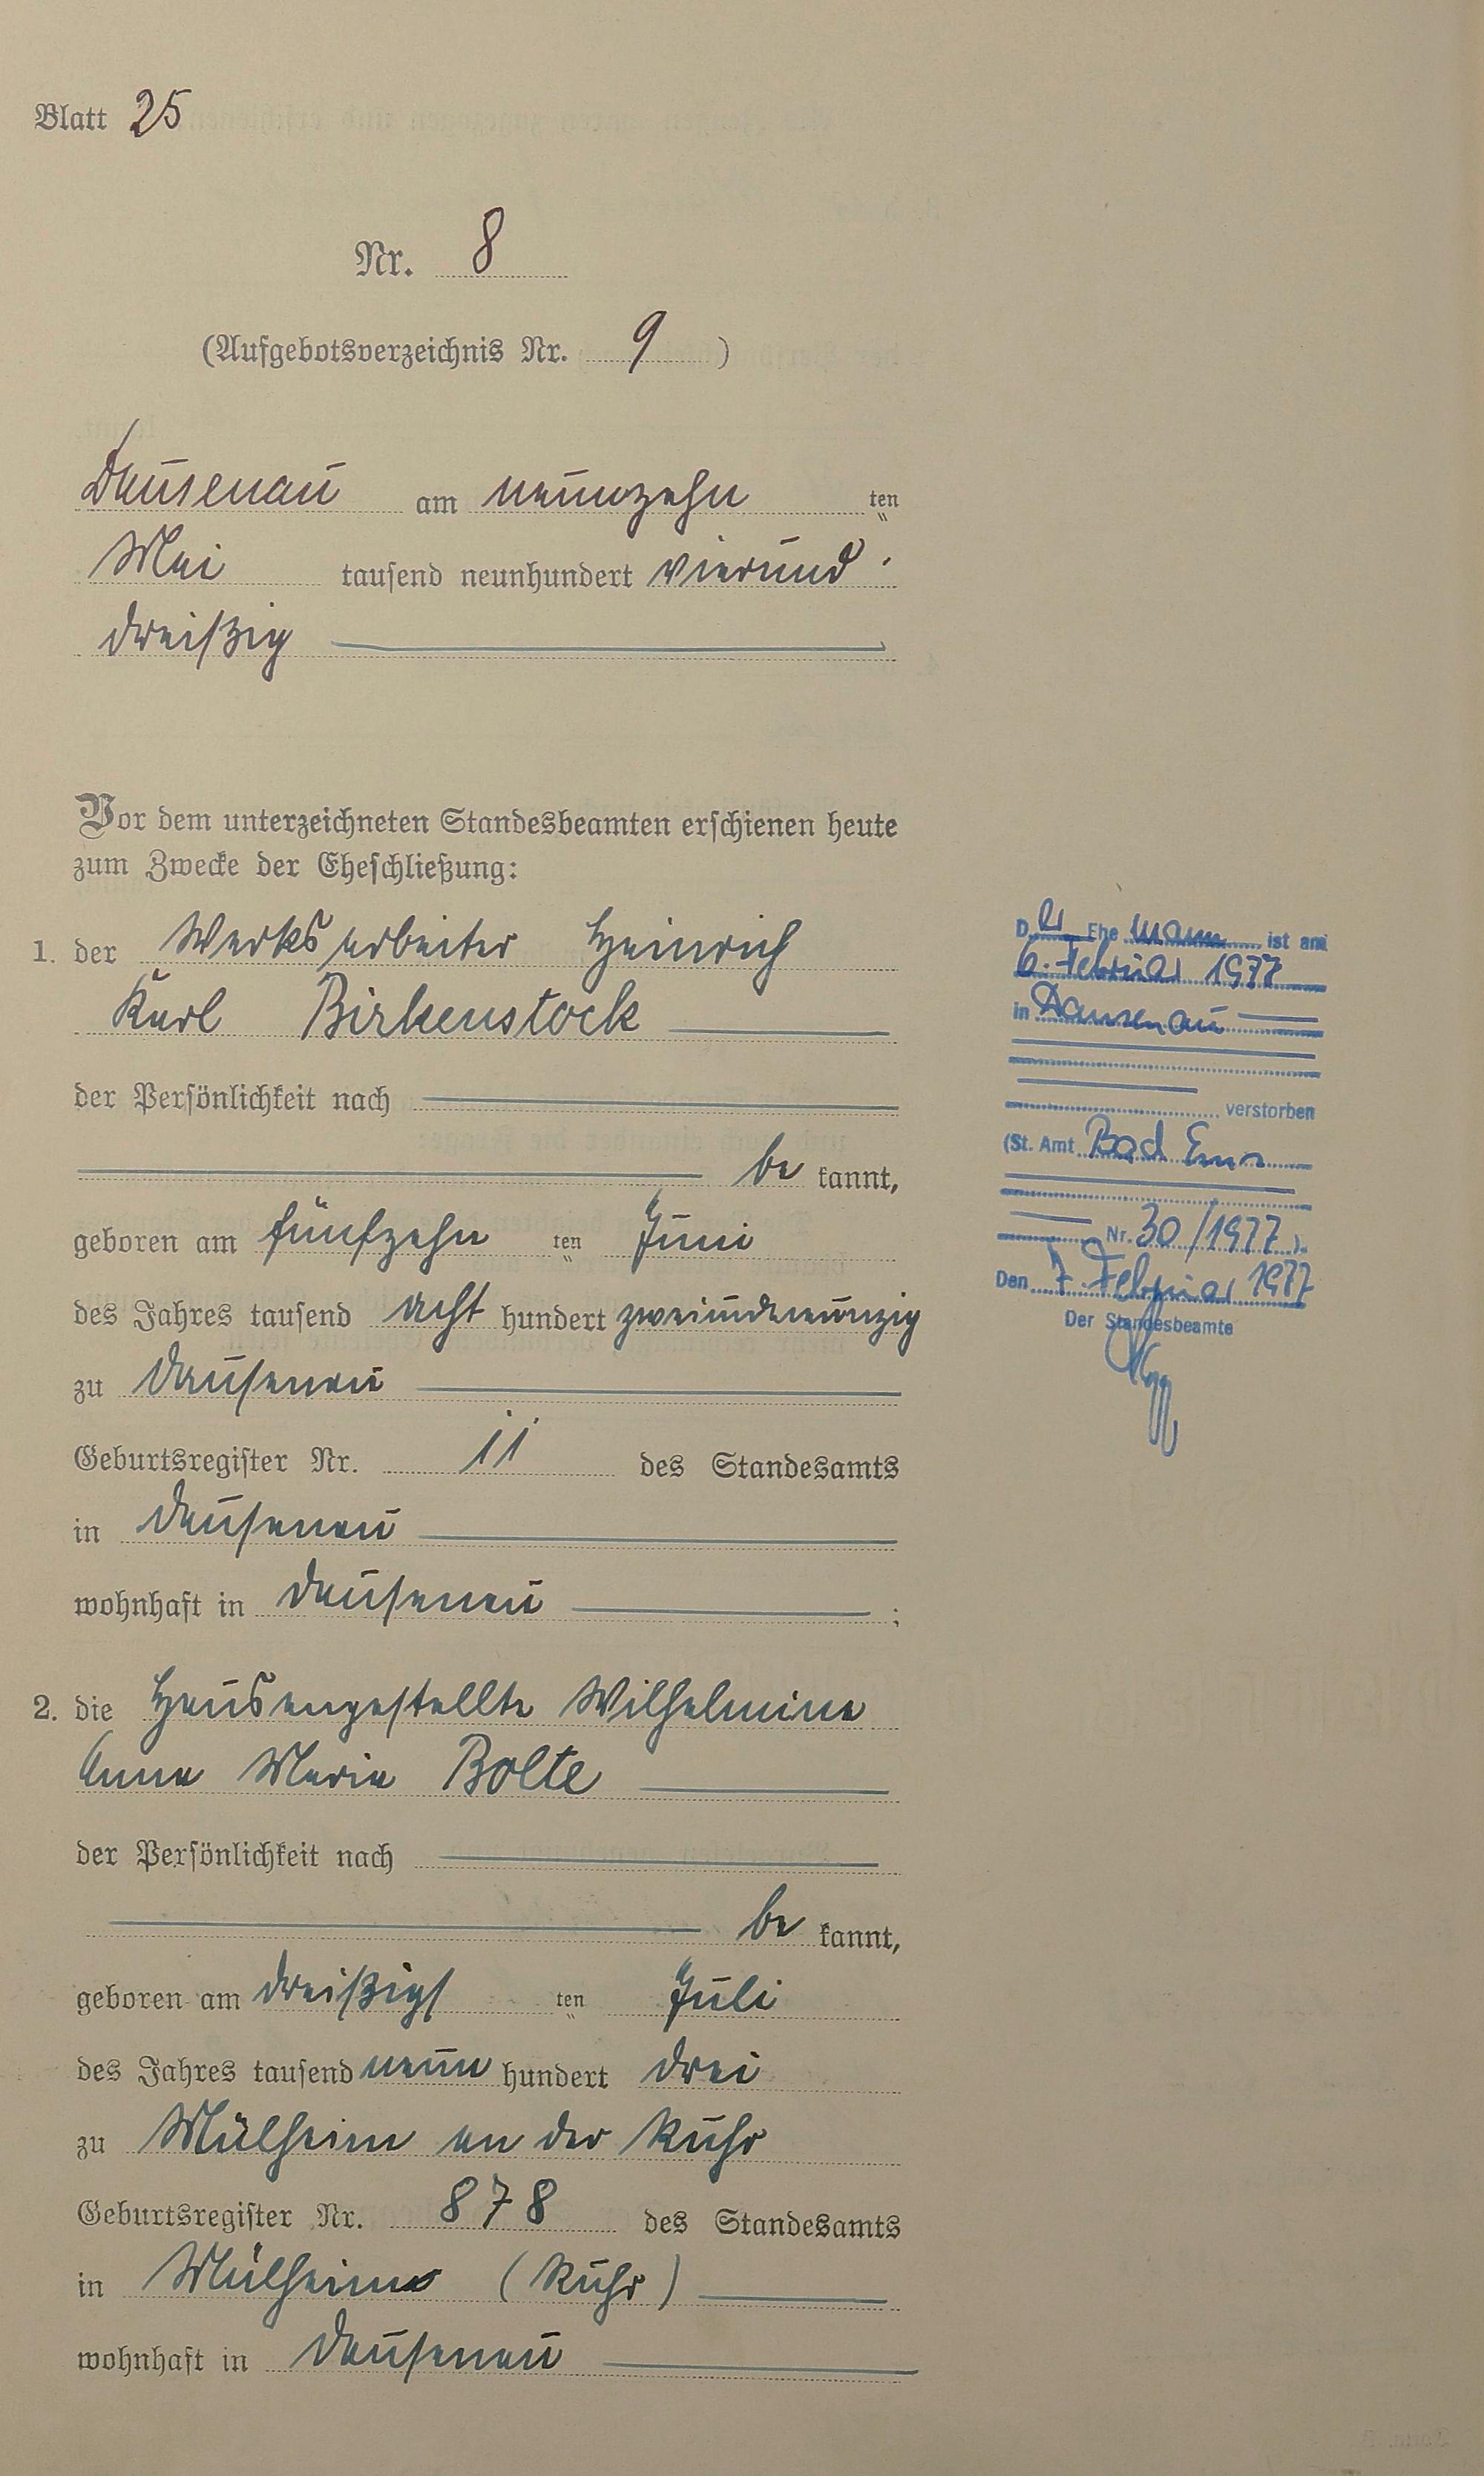 Blatt 25
Nr. 8
(Aufgebotsverzeichnis Nr. 9 )
Dausenau am neunzehn ten
Mai tausend neunhundert vierund
dreißig
Vor dem unterzeichneten Standesbeamten erschienen heute
zum Zwecke der Eheschließung:
1. der Werksarbeiter Heinrich
Karl Birkenstock
der Persönlichkeit nach
be kannt,
geboren am fünfzehn ten Juni
des Jahres tausend acht hundert zweiundneunzig
zu Dausenau
Geburtsregister Nr. 11 des Standesamts
in Dausenau
wohnhaft in Dausenau ;
2. die Hausangestellte Wilhelmine
Anna Maria Bolte
der Persönlichkeit nach
be kannt,
geboren am dreißigs ten Juli
des Jahres tausend neun hundert drei
zu Mülheim an der Ruhr
Geburtsregister Nr. 878 des Standesamts
in Mülheim (Ruhr)
wohnhaft in Dausenau
D er Ehe mann ist am
6. Februar 1977
in Dausenau
verstorben
(St. Amt Bad Ems
Nr. 30/1977 ).
Den 7. Februar 1977
Der Standesbeamte